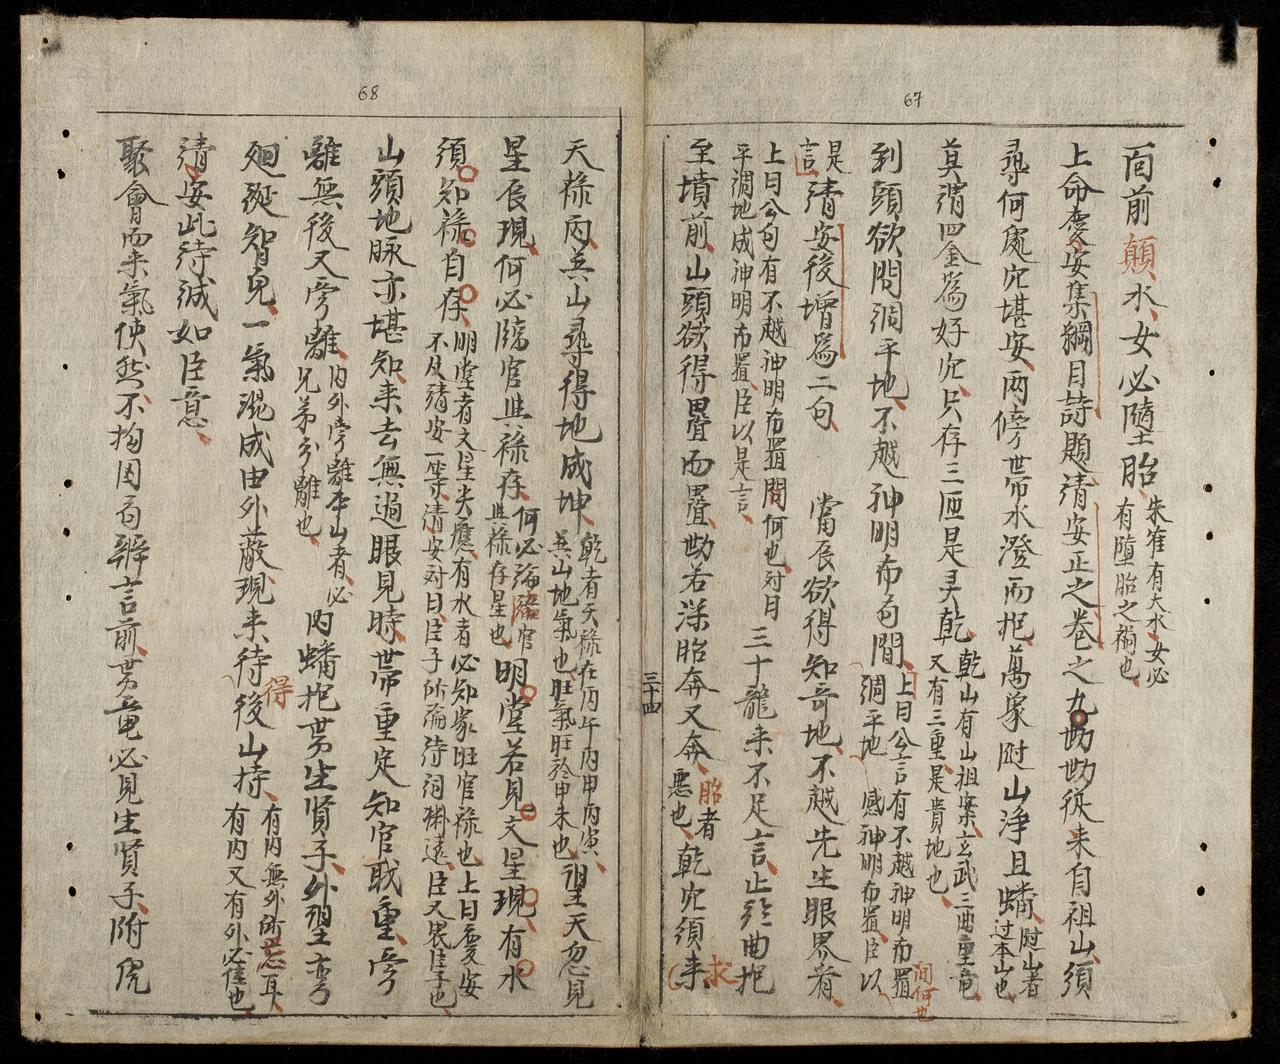 67
面前顛水女必墮胎朱雀有大水女必有墮胎之禍也
上命慶安集綱目詩題清安正之卷之九勘勘從来自祖山須
尋何處穴堪安两傍帯水澄而抱萬象附山浄且蟠附山者过本山也
莫謂四金為好穴只存三匝是灵乾乾山有山祖案玄武三曲重竜又有三重是貴地也
到頭欲問涧平地不越神明布局間上曰公言有不越神明布置問何也涧平地感神明布置臣以
是言清安後増為二句當辰欲得知竒地不越先生眼界看
上曰公句有不越神明布置問何也对曰平涧地成神明布置臣以是言三十龍来不足言止於曲抱
至墳前山頭欲得疊而疊勘若深胎奔又奔胎者悪也乾穴須求
三十四
68
天禄丙兵山尋得地成坤乾者天禄在内午内甲丙寅兵山地氣也旺氣旺於甲未也望天忽見
星辰現何必臨官與禄存何必論臨官與禄存星也明堂若見文星現有水
須知禄自存明堂者文星夫應有水者必知家旺官禄也上曰慶安不及清安一等清安对曰臣子所論待词渊遠臣又畏臣子也
山頭地脉亦堪知来去無過眼見時帯重定知官戢重旁
離無後又旁離内外旁離本山者必兄弟分離也内蟠抱世生賢子外望
廻避智見一氣混成由外蔽現来待得後山持有内無外所忌耳有内又有外必佳也
清安此待誠如臣意
聚會而来氣使然不拘因局辨言前世竟必見生賢子附虎